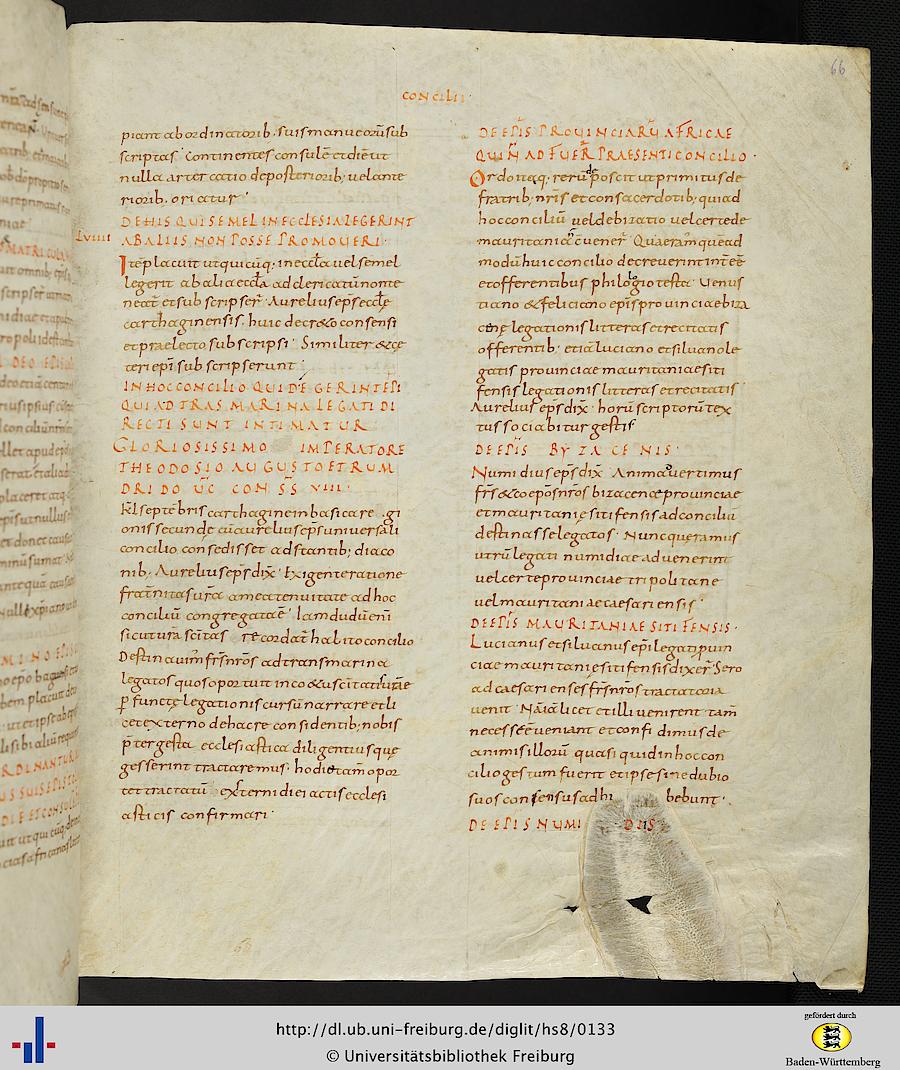 CONCILII
66
piant ab ordinatorib; suis manu eorū sub
scriptas continentes consulē et diē ut
nulla altercatio de posteriorib; vel ante
riorib; oriatur
DE HIS QUI SEMEL IN ECCLESIA LEGERINT
LVIIII AB ALIIS NON POSSE PROMOVERI
Itē placuit ut quicūq; in eccl̄a vel semel
legerit ab alia eccl̄a ad clericatū non te
neat̄ et sub scripser̄ Aurelius ep̄s eccl̄e
carthaginensis huic decr&o consensi
et praelecto sub scripsi Similiter &cę
teri ep̄i sub scripserunt
IN HOC CONCILIO QUID EGERINT EP̄I
QUI AD TRASMARINA LEGATI DI
RECTI SUNT INTIMATUR
GLORIOSISSIMO IMPERATORE
THEODOSIO AUGUSTO ET RUM
DRIDO ŪC CON S̄S VIII
Kl̄ septēbris carthagine in basica re gi
onis secunde cū aurelius ep̄s universali
concilio consedisset adstantib; diaco
nib; Aurelius ep̄s dix̄ Exigente ratione
frat̄nitas ur̄a a mea tenuitate ad hoc
conciliū congregatā ē Iam dudū enī
sicut ur̄a sc̄itas recordat̄ habito concilio
Destinavim̄ fr̄s nr̄os ad transmarina
legatos quos oportū in co&u sc̄itatis urāe
p̄ functę legationis cursū narrare et li
cet externo de hac re considentib; nobis
p̄ter gesta ecclesiastica diligentius quę
gesserint tractaremus hodie tam̄ opor
tet tractatū externi diei actis ecclesi
asticis confirmari
DE EP̄IS PROVINCIARŪ AFRICAE
QUI N̄ ADFUER̄ PRAESENTI CONCILIO
Ordo itaq; rerū deposcit ut primitus de
fratrib; nr̄is et consacerdotib; qui ad
hoc conciliū vel de bizatio vel certe de
mauritania cuener̄ Quaeram̄ que ad
modū huic concilio decreverint intēē
et offerentibus philogio testa Venus
tiano & feliciano ep̄is provinciae biza
cenę legationis litteras et recitatis
offerentib; etiā luciano et silvano le
gatis provinciae mauritaniae siti
fensis legationis litteras et recitatis
Aurelius ep̄s dix̄ horū scriptorū tex
tus sociabitur gestis
DE EP̄IS BYZACENIS
Numidius ep̄s dix̄ Animaduertimus
fr̄s & coep̄os nr̄os bizacenae provinciae
et mauritanię sitifensis ad conciliū
destinasse legatos Nunc queramus
utrū legati numidiae advenerint
vel certe provinciae tripolitane
vel mauritaniae caesariensis
DE EP̄IS MAURITANIAE SITIFENSIS
Lucianus et silvanus ep̄i legati p̄uin
ciae mauritanię sitifensis dixer̄ Sero
ad caesarienses fr̄s nr̄os tractatoria
venit Nā iā licet et illi venirent tam̄
necesse ē veniant et confidimus de
animis illorū quasi quid in hoc con
cilio gestum fuerit et ipse sine dubio
suos consensus adhi bebunt
DE EP̄IS NUMI DIIS
http://dl.ub.uni-freiburg.de/diglit/hs8/0133
© Universitätsbibliothek Freiburg
gefördert durch
Baden-Württemberg